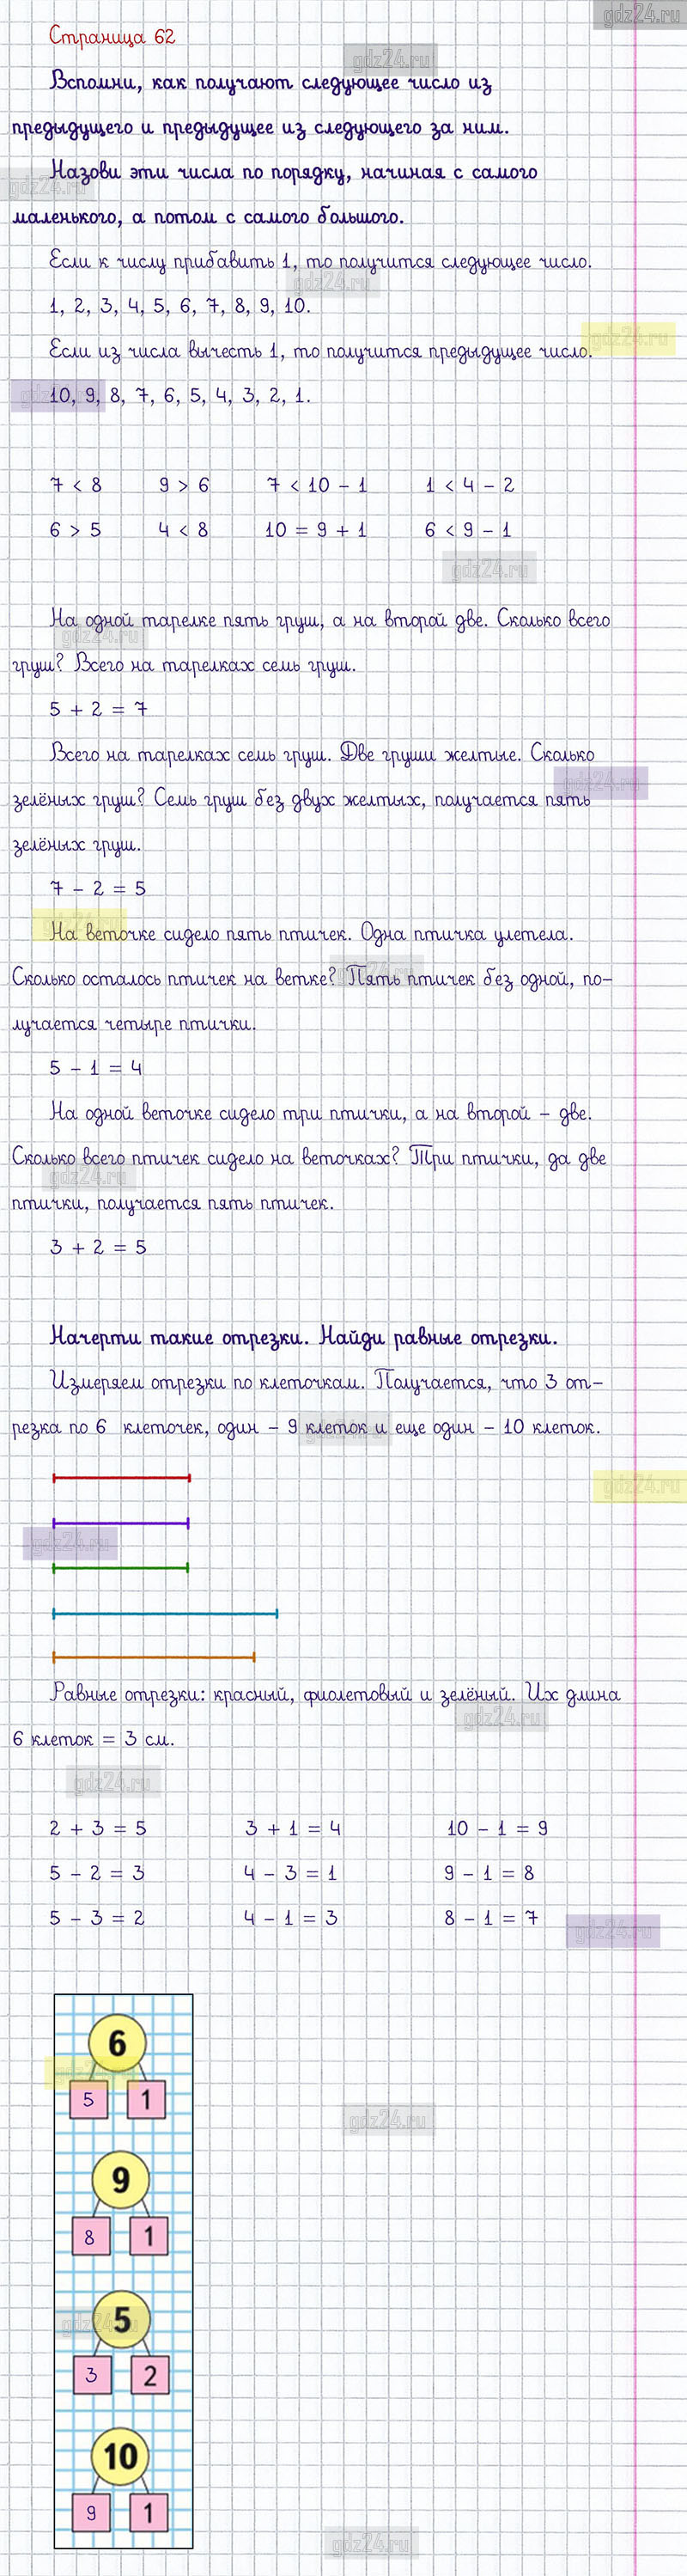 gdz24.ru
Страница 62
gdz24.ru
Вспомни, как получают следующее число из
предыдущего и предыдущее из следующего за ним.
Назови эти числа по порядку, начиная с самого
gdz24.ru
маленького, а потом с самого большого.
Если к числу прибавить 1, то получится следующее число.
gdz24.ru
1, 2, 3, 4, 5, 6, 7, 8, 9, 10.
gdz24.ru
Если из числа вычесть 1, то получится предыдущее число.
10, 9, 8, 7, 6, 5, 4, 3, 2, 1.
7 < 8 9 > 6 7 < 10 - 1 1 < 4 - 2
6 > 5 4 < 8 10 = 9 + 1 6 < 9 - 1
gdz24.ru
На одной тарелке пять груш, а на второй две. Сколько всего
gdz24.ru
груш? Всего на тарелках семь груш.
5 + 2 = 7
Всего на тарелках семь груш. Две груши желтые. Сколько
gdz24.ru
зелёных груш? Семь груш без двух желтых, получается пять
зелёных груш.
7 - 2 = 5
gdz24.ru
На веточке сидело пять птичек. Одна птичка улетела.
gdz24.ru
Сколько осталось птичек на ветке? Пять птичек без одной, по-
лучается четыре птички.
5 - 1 = 4
На одной веточке сидело три птички, а на второй – две.
Сколько всего птичек сидело на веточках? Три птички, да две
gdz24.ru
птички, получается пять птичек.
3 + 2 = 5
Начерти такие отрезки. Найди равные отрезки.
Измеряем отрезки по клеточкам. Получается, что 3 от-
резка по 6 клеточек, один – 9 клеток и еще один – 10 клеток.
gdz24.ru
gdz24.ru
gdz24.ru
Равные отрезки: красный, фиолетовый и зелёный. Их длина
gdz24.ru
6 клеток = 3 см.
gdz24.ru
2 + 3 = 5 3 + 1 = 4 10 - 1 = 9
5 - 2 = 3 4 - 3 = 1 9 - 1 = 8
5 - 3 = 2 4 - 1 = 3 8 - 1 = 7
gdz24.ru
6
gdz24.ru
5 1
gdz24.ru
9
8 1
5
gdz24.ru
3 2
10
9 1
gdz24.ru